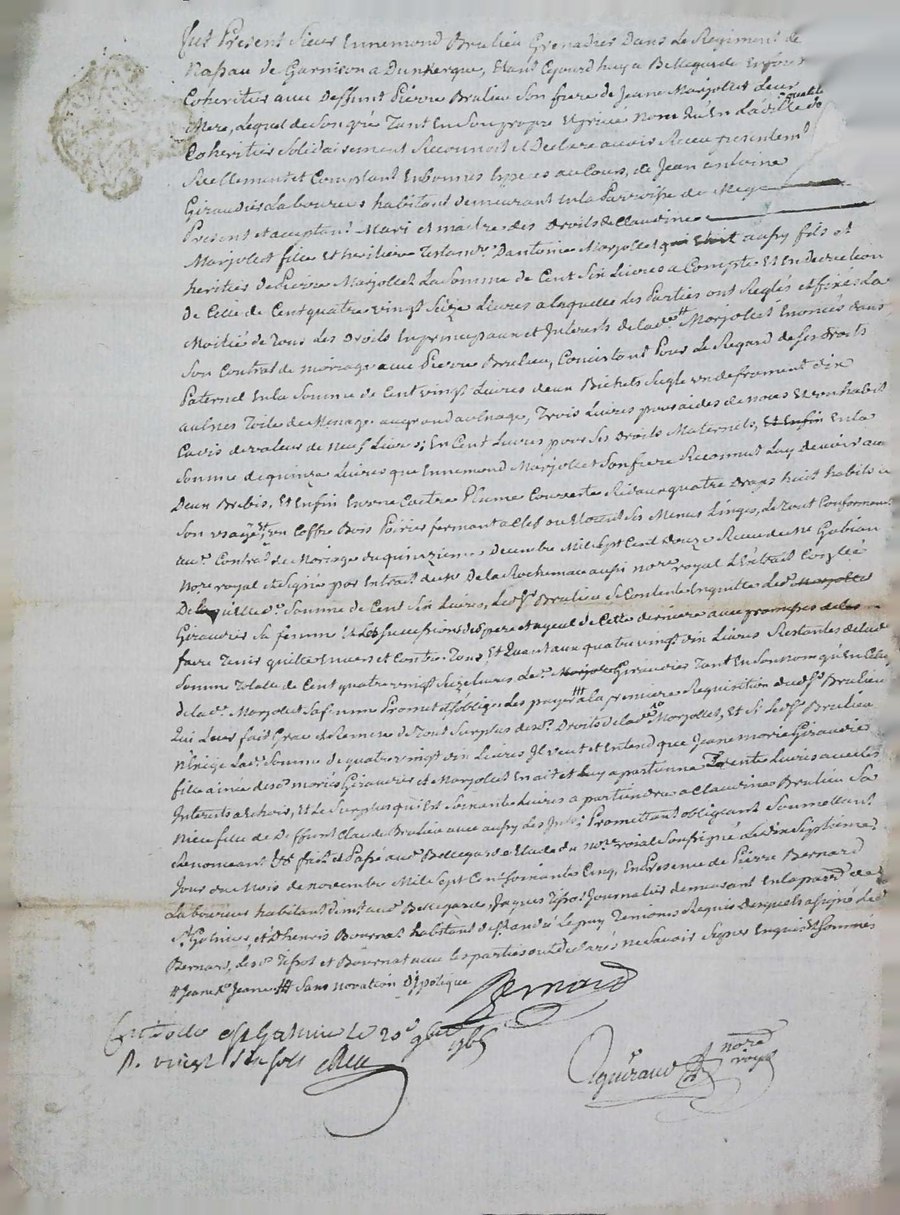 fut Present Sieur Ennemond Brulieu Grenadier Dans Le Regiment de
Nassau de Garnison a Dunkerque, Etant Cejourdhuy a Bellegarde
Coheritier avec Deffunt Pierre Brulieu Son frere de Jeane Marjollet Leur
Mere, Lequel de Son gré Tant En Son propre Et privé Nom qu'En La ditte qualité de
Coheritier Solidairement Reconnoit et Declare avoir Receu presentemt
Reellement et Comptant En bonnes Especes au Cours, de Jean antoine
Giraudier Laboureur habitant demeurant En La Parroisse de
Present et acceptant Mari et maitre des Droits de Claudine
Marjollet fille Et heritiere Dantoine Marjollet aussy fils et
heritier de Pierre Marjollet La Somme de Cent Six Livres a Compte Et En Deduction
De Celle de Cent quatre vingt Seize Livres a laquelle Les Parties ont Reglés et fixés La
Moitié de Tous Les Droits En principaux et Interests de lade Marjollet Enoncés dans
Son Contrat de mariage avec Pierre Brulieu, Consistant Pour Le Regard de Ses Droits
Paternel En la Somme de Cent vingt Livres deux Bichets Segle un de froment dix
aulnes Toile de Menage au grand aulnage, Trois Livres pour aides de noces Et un habit
Cadis de valeur de neuf Livres, En Cent Livres pour Ses Droits Maternels, Et Enfin En la
Somme de quinze Livres que Ennemond Marjollet Son frere Reconnut Luy devoir avec
Deux Brebis, Et Enfin En une Couverte Rideaux quatre Draps huit habits a
Son usage, un Coffre Bois Poirier fermant a Clef ou Etoient Ses Menus Linges, Le Tout Conformemt
aud. Contrat de Mariage du quinzieme Decembre Mil Sept Cent Douze Receu de Me Gubian
Nore royal et Signé par Extrait de Me De La Rochemace aussi nore royal
De laquelle de Somme de Cent Six Livres, Led. Sr Brulieu Se Contente En quitte Led.
Giraudier Sa femme Et Les Successions des pere et ayeul de Cette derniere avec promesses de Les
faire Tenir quitte Envers et Contre Tous, Et Quant aux quatre vingt dix Livres Restantes de lad.
Somme Totalle de Cent quatre vingt Seize Livres Led. Giraudier Tant En Son nom qu'En Celuy
de lade Marjollet Sa femme Promet et s'oblige Les payer a la premiere Requisition dud. Sr Brulieu
qui Leur fait Grace et Remise de Tout Surplus desd. Droits de lade Marjollet, Et Si Led. Sr Brulieu
N'exige Lade Somme de quatre vingt dix Livres Il veut et Entend que Jeane marie Giraudier
fille ainée desd. mariés Giraudier et Marjollet En ait et Luy appartienne Trente Livres avec Les
Interets a Echoir, Et Le Surplus qui Est Soixante Livres appartiendra a Claudine Brulieu Sa
Niece fille de Deffunt Claude Brulieu avec aussy Les Promettant obligeant Soumettant
Renonceant Et fait et Passé aud. Bellegarde Etude du nore roial Soussigné Le dix Septieme
Jour du Mois de novembre Mil Sept Cent Soixante Cinq, En Presence de Pierre Bernard
Laboureur habitant aud. Bellegarde, Jaques Tissot Journalier demeurant En la parr. de
St Galmier, et Dhenris Bournat habitant Temoins Requis Desquels a Signé Led.
Bernard, Lesd. Tissot et Bournat avec Les parties ont declarés ne Savoir Signer Enquis Et Sommés
# Sans novation D'ypoteque
Bernard
Controllé a St Galmier Le 20e 9bre 1765
R. vingt Six Sols
nore
royal